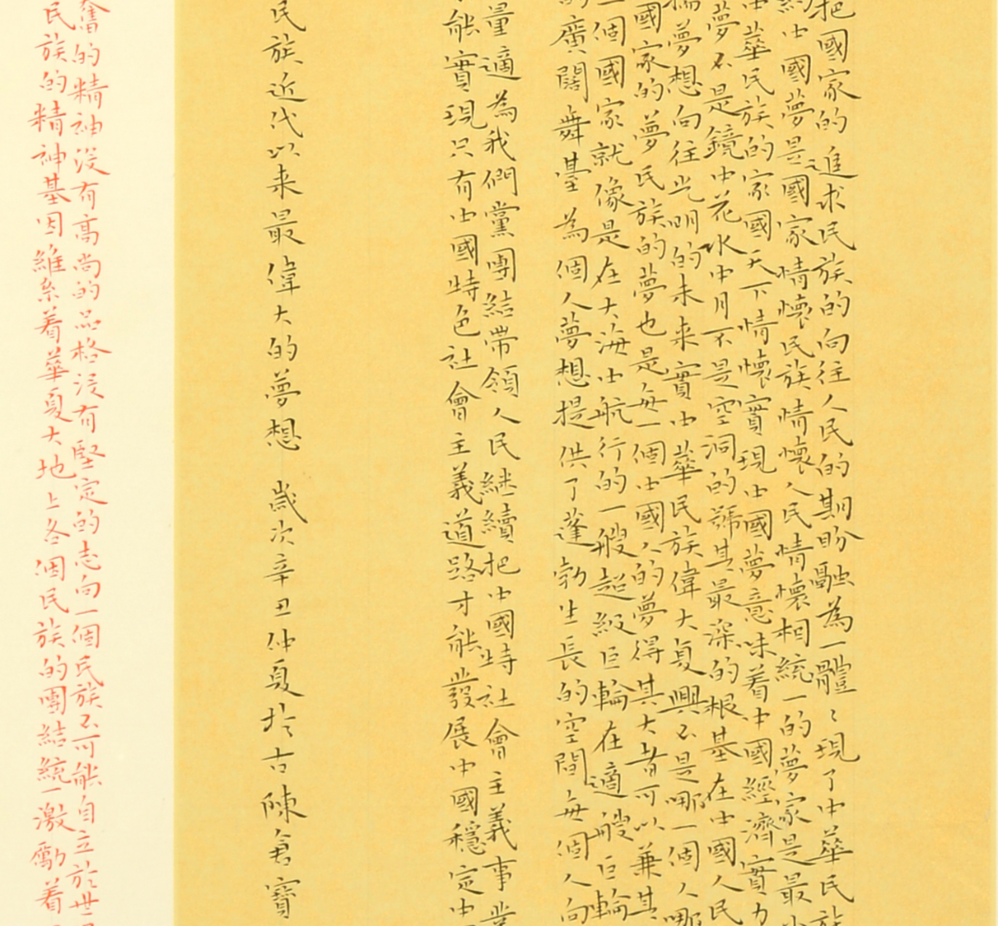 把國家的追求民族的向往人民的期盼融為一體〻現了中華民族
中國夢是國家情懷民族情懷人民情懷相統一的夢家是最小
中華民族的家國天下情懷實現中國夢意味着中國經濟實力
夢不是鏡中花水中月不是空洞的號其最深的根基在中國人民
夢想向往光明的未來實中華民族偉大复興不是哪一個人哪
國家的夢民族的夢也是每一個中國人的夢得其大者可以兼其
一個國家就像是在大海中航行的一艘超級巨輪在適艘巨輪
的廣闊舞臺為個人夢想提供了蓬勃生長的空間每個人向
量適為我們黨團結帶領人民继續把中國特社會主義事業
能實現只有中國特色社會主義道路才能發展中國穩定中
民族近代以来最偉大的夢想 歲次辛丑仲夏於古陳倉寶
奮的精神没有高尚的品格没有堅定的志向一個民族不可能自立於世
民族的精神基因維系着華夏大地上各個民族的團結統一激勵着